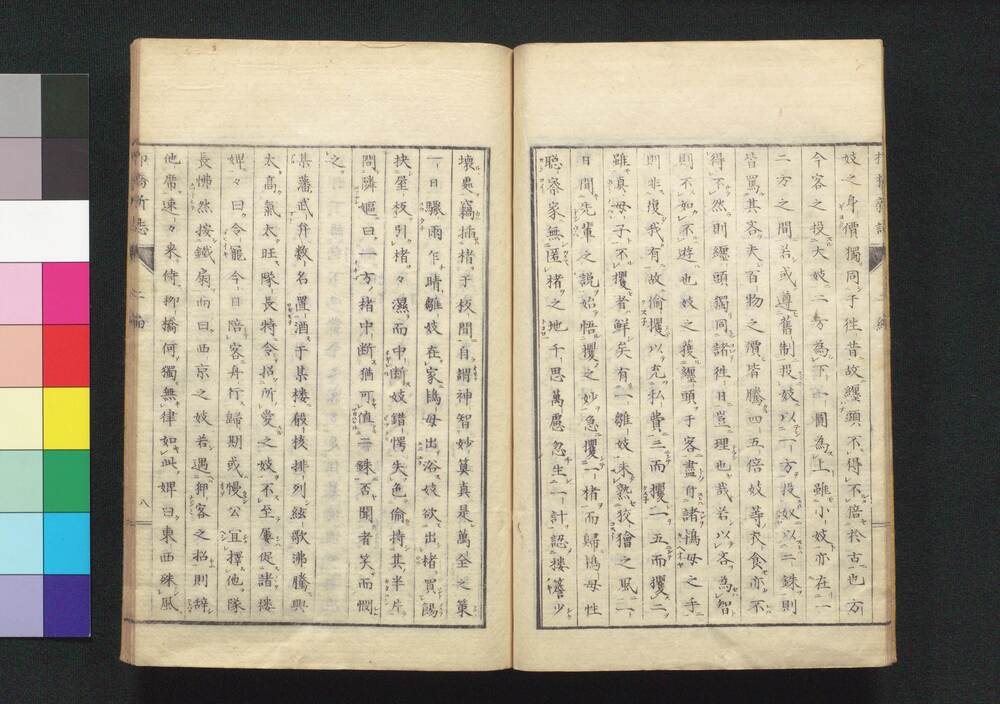 妓之身價獨同于徃昔故纏頭不得不倍於古也方
今客之投大妓二方為下一圓為上雖小妓亦在一
二方之間若或遵舊制投妓以一方投奴以二銖則
皆罵其客夫百物之價皆騰四五倍妓等衣食亦不
得不然則纏頭獨同諸徃日豈理也哉若以吝為智
則不如不遊也妓之獲纏頭于客盡付諸鴇母之手
則非復我有故偷攫以充私費三而攫一五而攫二
雖真母子不攫者鮮矣有一雛妓未熟狡獪之風一
日聞先輩之説始悟攫之妙急攫一楮而歸鴇母性
聡察家無匿楮之地千思萬慮忽生一計認搂簷少
壊處竊插楮于板間自謂神智妙算真是萬全之策
一日驟雨乍晴雛妓在家鴇母出浴妓欲出楮買餳
挾屋板引楮々濕而中斷妓錯愕失色偷持其半片
問隣嫗曰一方楮中斷猶可值二銖否聞者笑而憫
之
某藩武弁數名置酒于某楼殽核排列絃歌沸騰興
太高氣太旺隊長特令招所愛之妓不至屢促諸搂
婢々曰令寵今日陪客舟行歸期或慢公宜擇他隊
長怫然按鐵扇而曰西京之妓若遇狎客之招則辞
他席速々来侍柳橋何獨無律如此婢曰東西殊風
柳橋新誌 二編 八